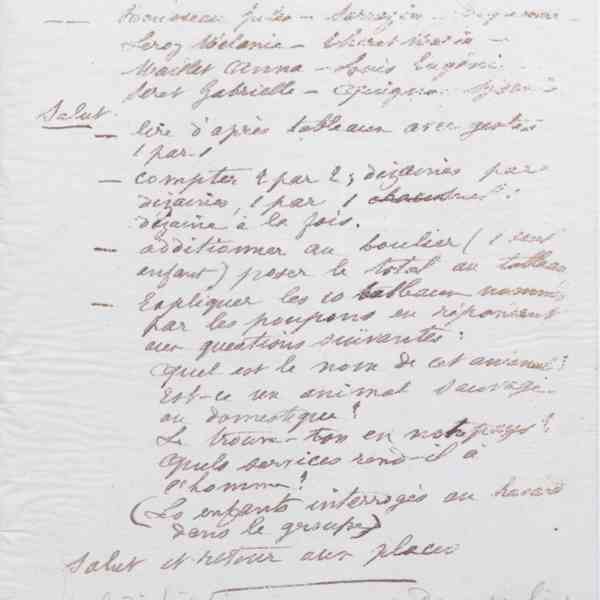 — Rousseau Jules — Sarrazin —
Leroy Mélanie — Maria —
Maillet Anna — Louis Eugénie
Seret Gabrielle —
Salut
— lire d'après tableaux avec gestes
1 par 1
— compter 2 par 2, dizaines par
dizaines, 1 par 1
dizaine à la fois.
— additionner au boulier (1 seul
enfant) poser le total au tableau
— Expliquer les 10 tableaux nommés
par les poupons en réponsent
aux questions suivantes :
Quel est le nom de cet animal ?
Est-ce un animal sauvage
ou domestique ?
Le trouve-t-on en notre pays ?
Quels services rend-il à
l'homme ?
(Les enfants interrogés au hasard
dans le groupe)
Salut et retour aux places